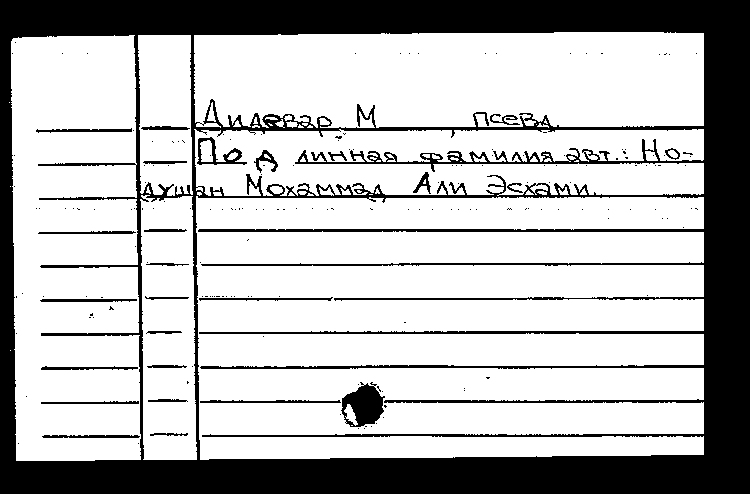 Дидевар, М , псевд.
Подлинная фамилия авт.: Но-
душан Мохаммад Али Эсхами.